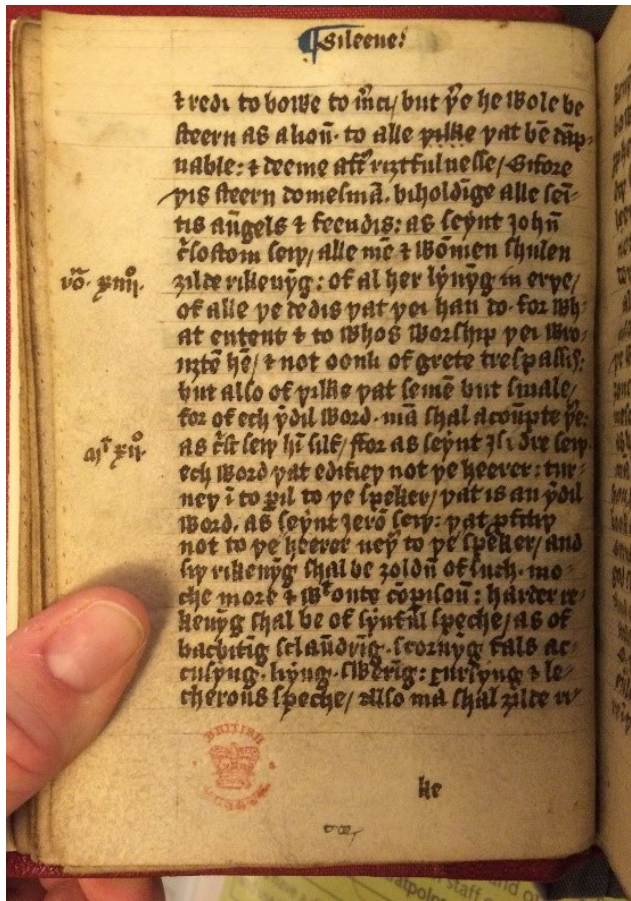 ¶Sileene:
⁊ redi to bowe to m̄ci/ but þe he wole be
steern as a lioū· to alle þilke þat bē dāp-
nable: ⁊ deeme aftˀ riȝtfulnesse/ Bifore
þis steern domesmā. biholdīge alle sei-
tis aūgels ⁊ feendis: as seynt ȝohū
c̄sostom seiþ/ alle mē ⁊ wōmen shulen
ȝilde rikenȳg: of al her lyuȳg in erþe/
vō· xiiij.
of alle þe dedis þat þei han do· for wh-
at entent ⁊ to whos worship þei wro-
uȝtē hē/ ⁊ not oonli of grete trespassis:
but also of þilke þat semē but smale/
for of ech ydil word· mā shal acoūpte þe:
mt xij.
as c̄st seiþ hī silf/ ffor as seynt ysidre seiþ
ech word þat edifieþ not þe heerer: tur-
neþ ī to p̱il to þe speker/ þat is an ydil
word. as seynt ierō seiþ: þat p̱fitiþ
not to þe heerer neþ to þe speker/ and
siþ rikenȳg shal be ȝoldū of such· mo-
che more ⁊ wᵗoute cōpisoū: harder re-
kenȳg shal be of synful speche/ as of
bacbitīg sclaūdrīg· scornȳg fals ac-
cusȳng· liȳng· swerīg: cursȳng ⁊ le-
cherous speche/ Also mā shal ȝilde ri-
ke
BRITISH